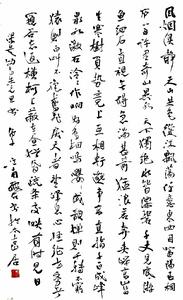 風烟俱净天山共色從流飄蕩任意東西自富陽至桐
廬一百許里奇山異水天下獨絕水皆縹碧千丈見底游
魚細石直視無碍急湍甚箭猛浪若奔夾岸高山皆
生寒樹負勢競上互相軒邈爭高直指千百成峰
泉水激石泠泠作響好鳥相鳴嚶嚶成韻蟬則千轉不窮
猿則百叫無絕鳶飛戾天者望峰息心經綸世務者
窺谷忘反橫柯上蔽在晝猶昏疏條交映有時見日